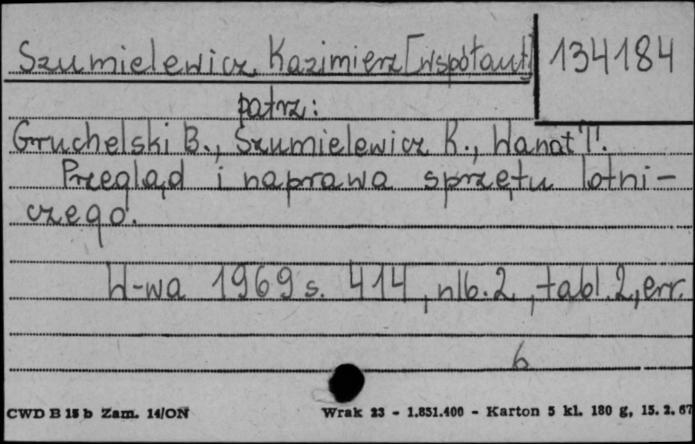 Szumielewicz Kazimierz [współaut] 134184
patrz:
Gruchelski B., Szumielewicz K., Wanat T.
Przegląd i naprawa sprzętu lotni-
czego.
W-wa 1969 s. 414, nlb. 2, tabl. 2, err.
6
CWD B 15 b Zam. 14/ON Wrak 23 - 1.851.400 - Karton 5 kl. 180 g, 15. 2. 67